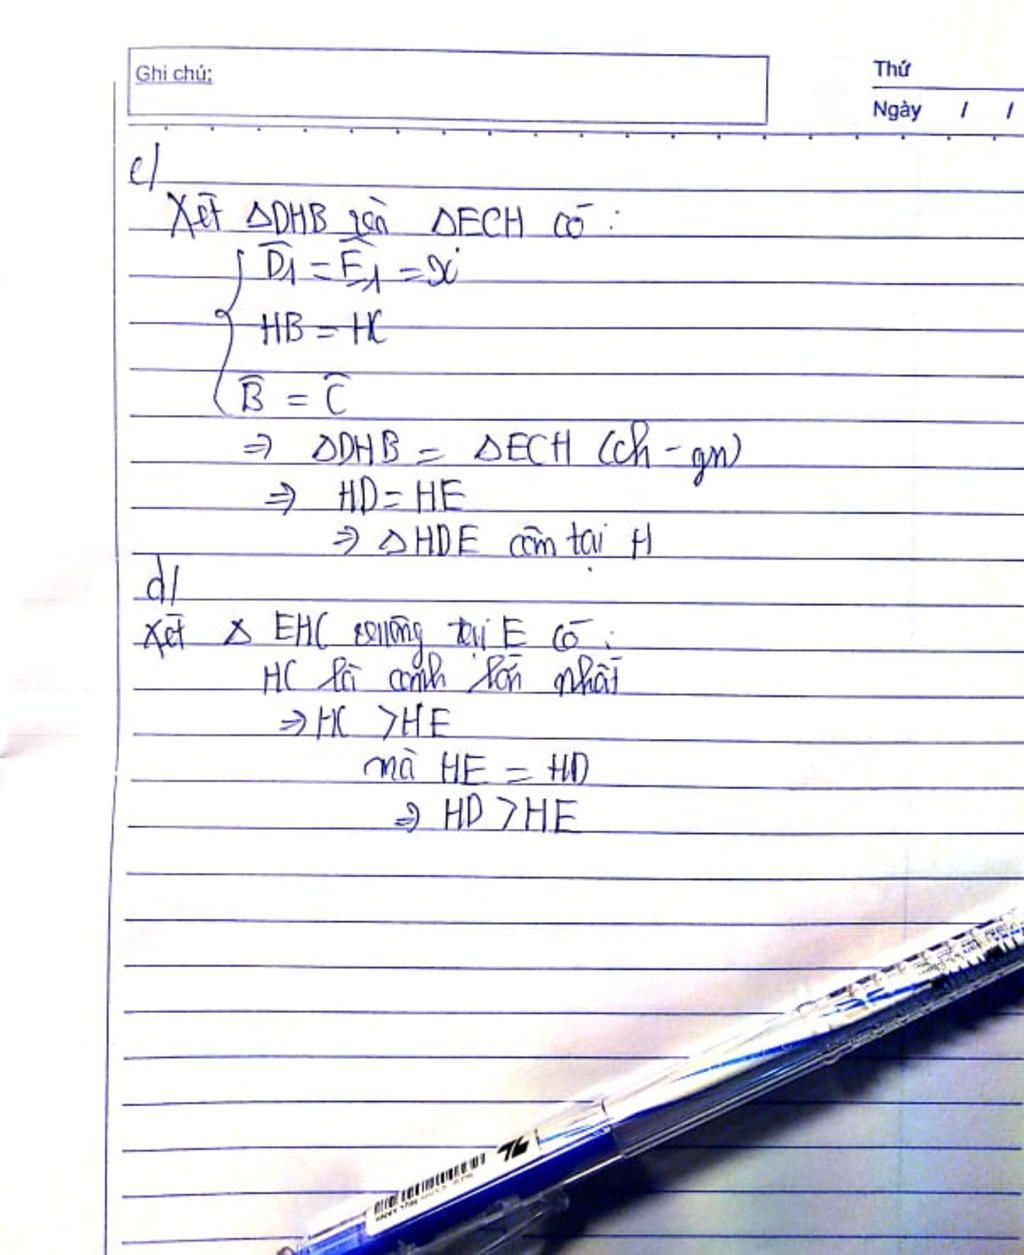 Ghi chú:
Thứ
Ngày / /
c/
Xét ΔDHB và ΔECH có :
D̂1 = Ê1 = 
HB = HC
B̂ = Ĉ
⇒ ΔDHB = ΔECH (ch - gn)
⇒ HD = HE
⇒ ΔHDE cân tại H
d/
Xét Δ EHC vuông tại E có :
HC là cạnh lớn nhất
⇒ HC > HE
mà HE = HD
⇒ HD > HE
TL